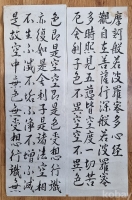 摩訶般若波羅蜜多心経
観自在菩薩行深般若波羅蜜
多時照見五蘊皆空度一切苦
厄舎利子色不異空空不異
色即是空空即是色受想行識
亦復如是舎利子是諸法空相
不生不滅不垢不浄不増不減
是故空中無色無受想行識